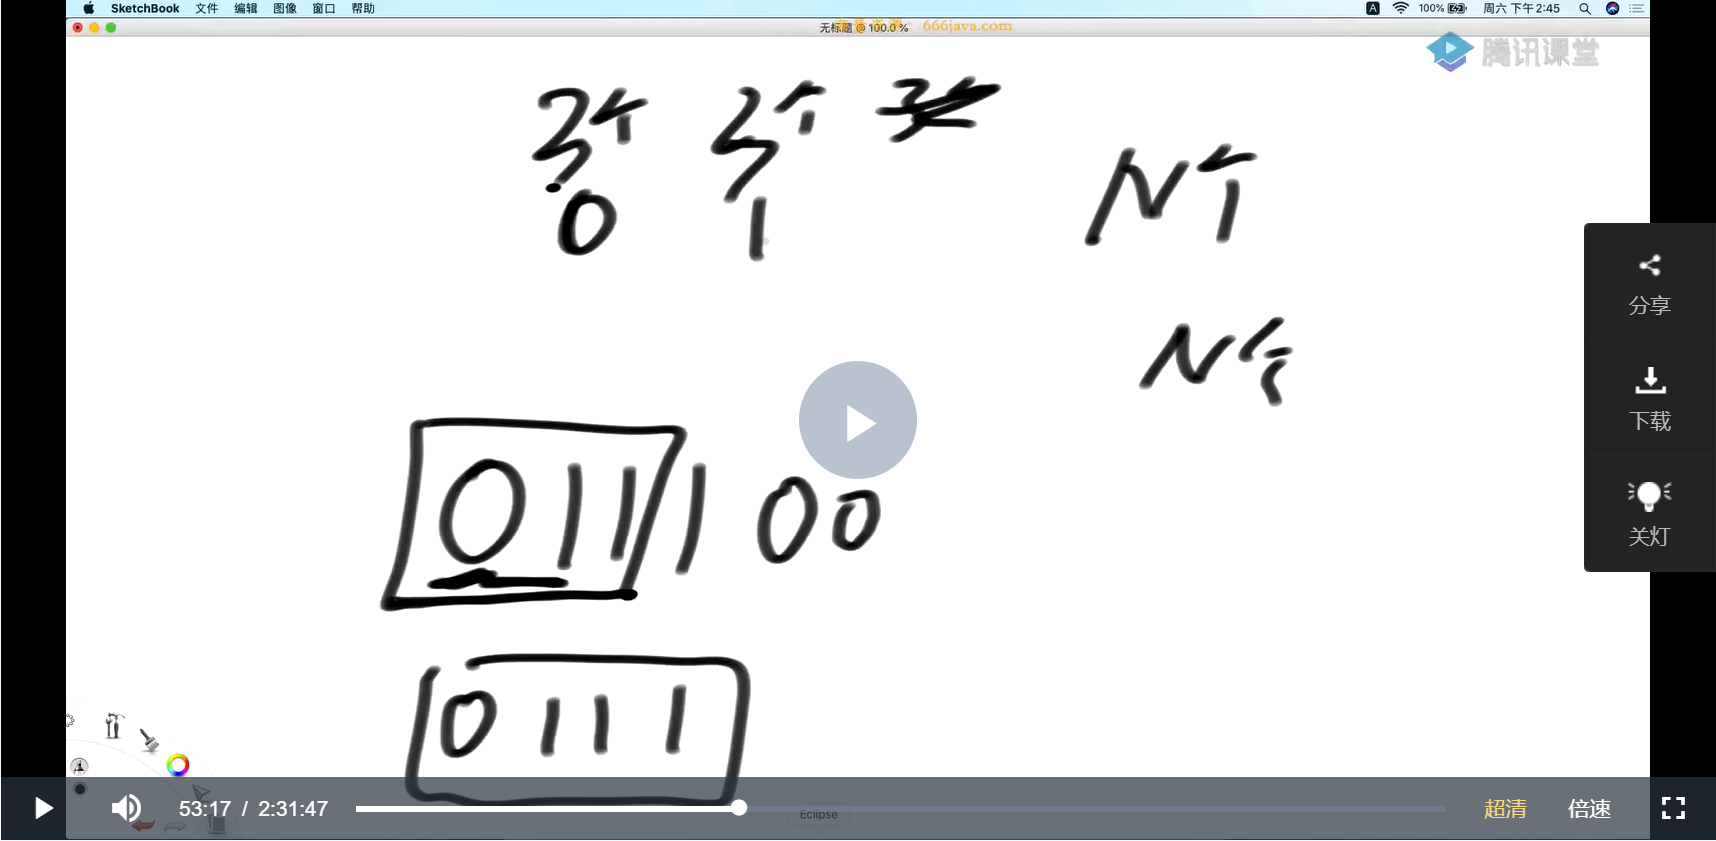 SketchBook 文件 编辑 图像 窗口 帮助 A 100% 周六 下午2:45
无标题 @ 100.0 % 666java.com
腾讯课堂
2个 2个
0 1
N个
N个
0 1 1 1 0 0
0 1 1 1
分享
下载
关灯
53:17 / 2:31:47 超清 倍速
Eclipse